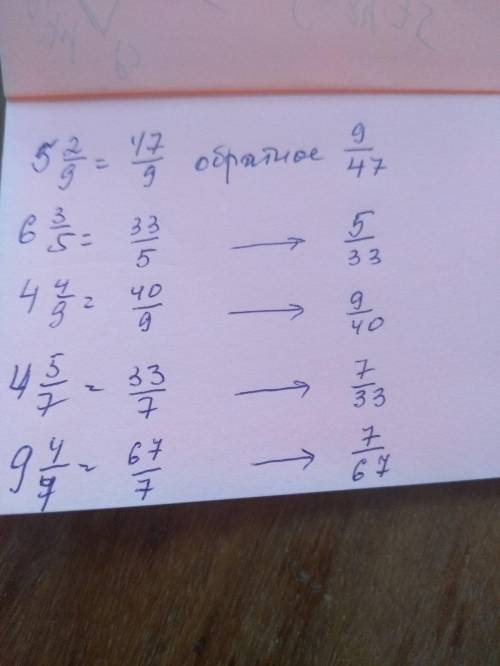 5 2/9 = 47/9 обратное 9/47
6 3/5 = 33/5 → 5/33
4 4/9 = 40/9 → 9/40
4 5/7 = 33/7 → 7/33
9 4/7 = 67/7 → 7/67